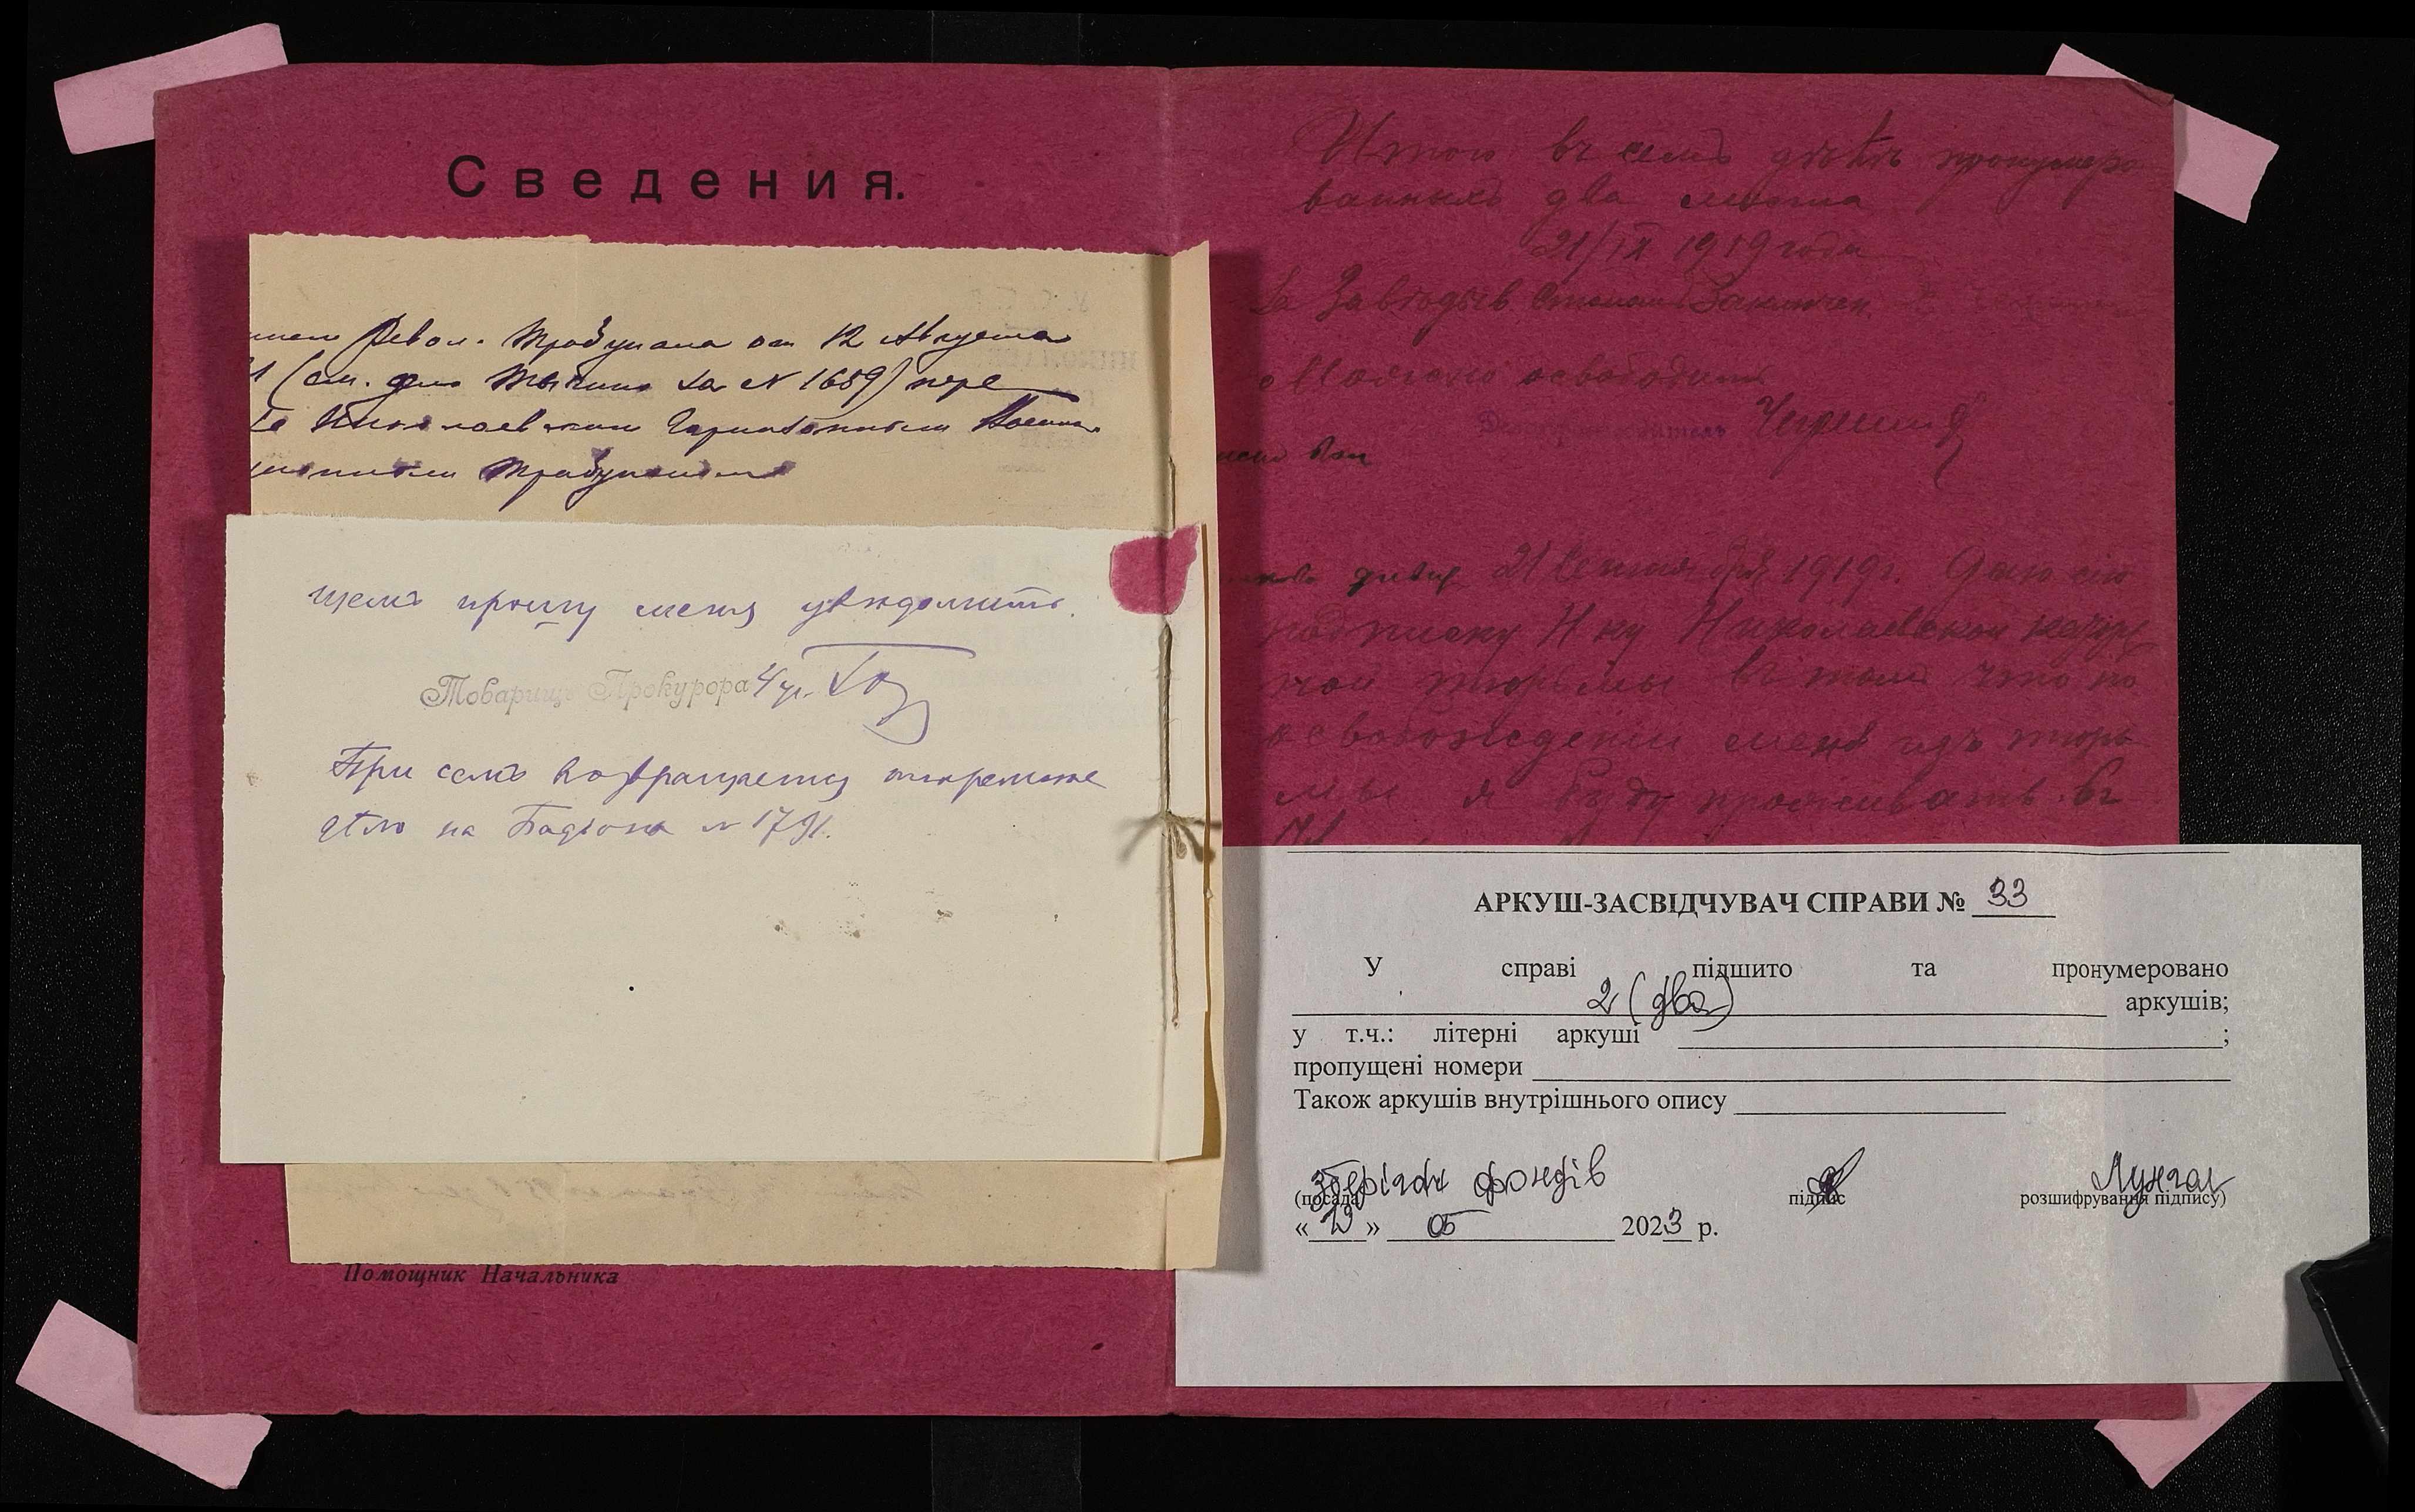 Сведения.
Револ. Трибунала от 12 Августа
(см. дело за N 1689) пере
Николаевским Гарнизонным Военно
Трибуналом
щемъ прошу меня увѣдомить.
Товарищъ Прокурора 4 уч.
При семъ возвращается тюремное
дѣло на N 1791.
Помощник Начальника
Итого въ семъ дѣлѣ пронумеро
ванныхъ два листа
21/IX 1919 года
За
освободить
Делопроизводитель
21 Сентября 1919 г. Даю сію
подписку Н-ку Николаевской каторж
ной тюрьмы въ томъ что по
освобожденіи меня изъ тюрь
мы я буду проживать въ
АРКУШ-ЗАСВІДЧУВАЧ СПРАВИ № 33
У справі підшито та пронумеровано
2 (два) аркушів;
у т.ч.: літерні аркуші ;
пропущені номери
Також аркушів внутрішнього опису
зберігач фондів
(посада) підпис розшифрування підпису)
« » 05 2023 р.